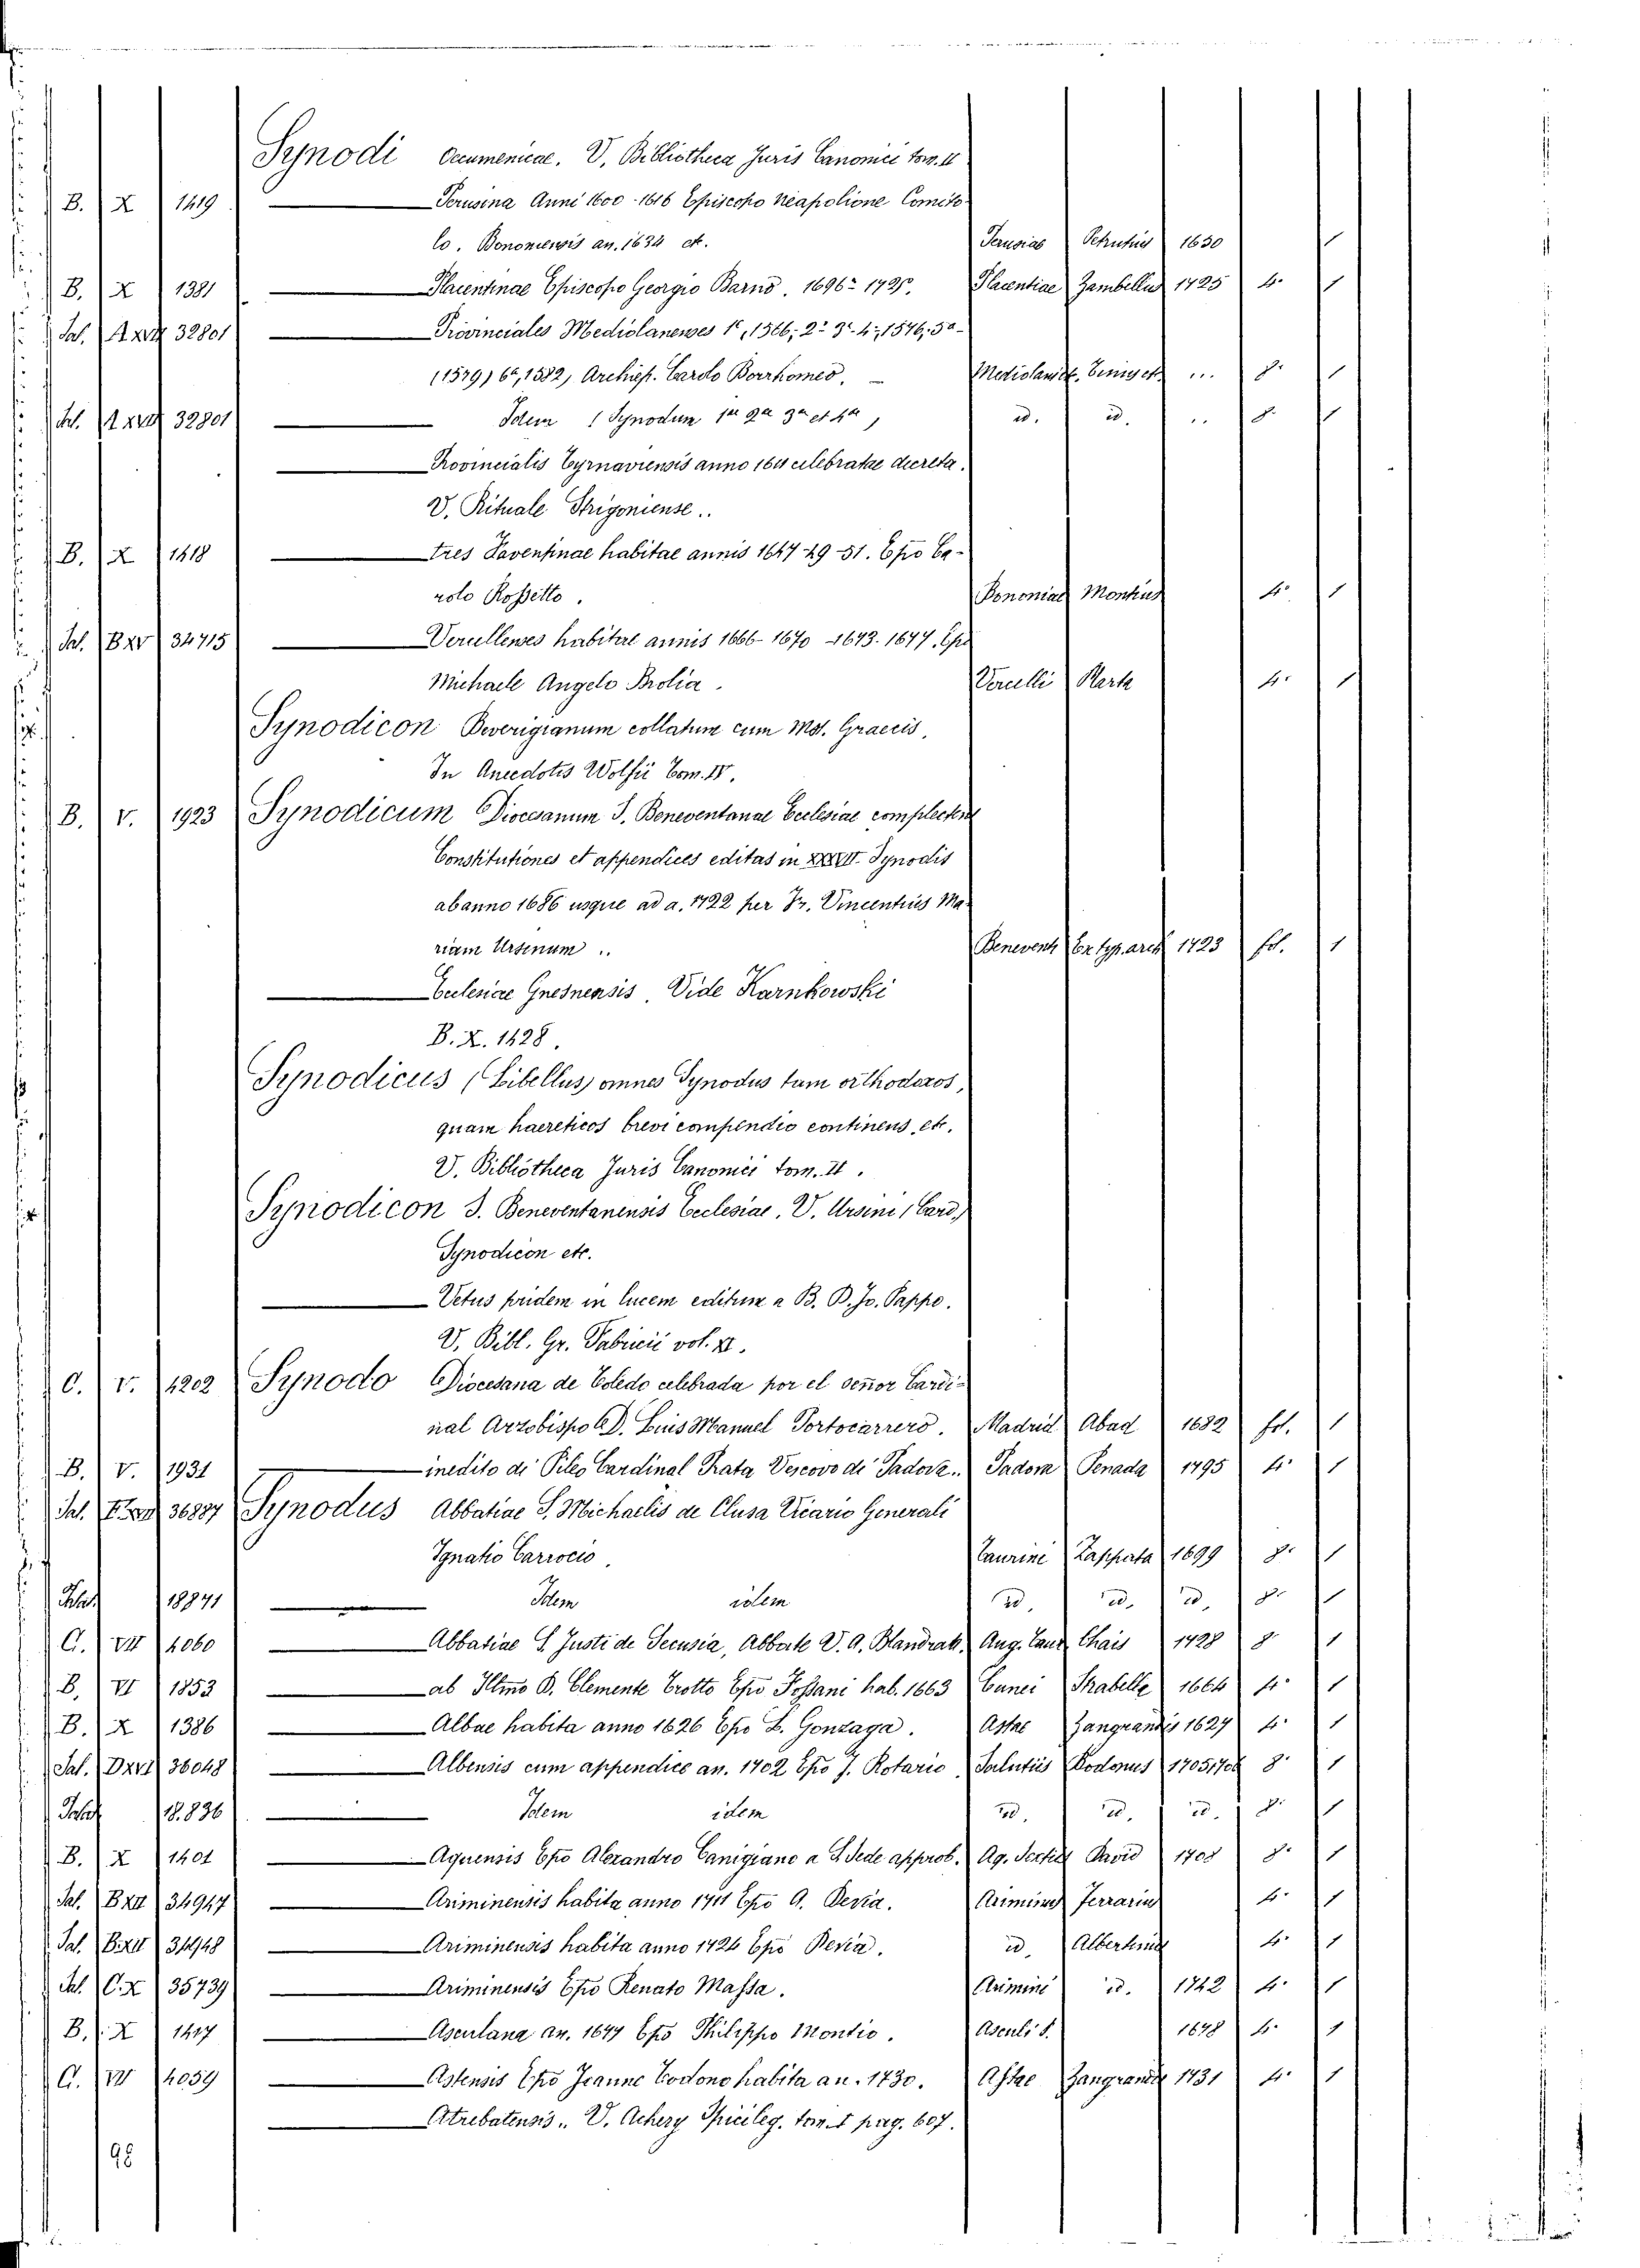 Synodi Oecumenicae. V. Bibliotheca Juris Canonici tom. II
B. X 1419 — Perusina Anni 1600-1616 Episcopo Neapolione Comito-
lo. Bononiensis an. 1634 et. Perusiae Petrutius 1630 1
B. X 1381 — Placentinae Episcopo Georgio Barno. 1696-1725. Placentiae Zambellus 1725 4° 1
Sal. A XVII 32801 — Provinciales Mediolanenses 1a, 1566; 2a 3a 4a, 1576, 5a
(1579) 6a, 1582, Archiep. Carolo Borrhomeo. Mediolani et. ... 8° 1
Sal. A XVII 32801 — Idem (Synodum 1a 2a 3a et 4a) id. id. .. 8° 1
— Provincialis Tyrnaviensis anno 1611 celebratae decreta.
V. Rituale Strigoniense..
B. X 1418 — tres Faventinae habitae annis 1647-49-51. Epo Ca-
rolo Rossetto. Bononiae Montius 4° 1
Sal. B XV 34715 — Vercellenses habitae annis 1666-1670-1673-1677. Epo
Michaele Angelo Brolia. Vercelli Marta 4° 1
Synodicon Beverigianum collatum cum Mst. Graecis.
In Anecdotis Wolfii Tom. IV.
B. V. 1923 Synodicum Dioecesanum S. Beneventanae Ecclesiae complectens
Constitutiones et appendices editas in XXXVII. Synodis
ab anno 1686 usque ad a. 1722 per Fr. Vincentius Ma-
riam Ursinum .. Benevent. Ex typ. arch. 1723 fol. 1
— Ecclesiae Gnesnensis. Vide Karnkowski
B. X. 1428.
Synodicus (Libellus) omnes Synodus tum orthodoxos,
quam haereticos brevi compendio continens, etc.
V. Bibliotheca Juris Canonici tom. II.
Synodicon S. Beneventanensis Ecclesiae. V. Ursini (Card.)
Synodicon etc.
— Vetus pridem in lucem editum a B. B. Jo. Pappo.
V. Bibl. Gr. Fabricii vol. XI.
C. V. 1202 Synodo Diocesana de Toledo celebrada por el señor Cardi-
nal Arzobispo D. Luis Manuel Portocarrero. Madrid Abad 1682 fol. 1
B. V. 1931 — inedito di Pileo Cardinal Prata Vescovo di Padova.. Padova Penada 1795 4° 1
Sal. 36887 Synodus Abbatiae S. Michaelis de Clusa Vicario Generali
Ignatio Carrocio. Taurini Zappata 1699 8° 1
18841 — Idem idem id. id. id. 8° 1
C. VII 4060 — Abbatiae S. Justi de Secusia, Abbate V. A. Blandrat. Aug. Taur. Chais 1728 8 1
B. VI 1853 — ab Illmo D. Clemente Trotto Epo Fossani hab. 1663 Cunei Strabella 1664 4° 1
B. X 1386 — Albae habita anno 1626 Epo L. Gonzaga. Astae Zangrandis 1627 4° 1
Sal. D XVI 36048 — Albensis cum appendice an. 1702 Epo J. Rotario Salutiis Vodonus 1705,1708 8° 1
18.836 — Idem idem id. id. id. 8° 1
B. X 1401 — Aquensis Epo Alexandro Canigiano a S. Sede approb. Aq. David 1708 8° 1
Sal. B XII 34947 — Ariminensis habita anno 1711 Epo A. Devia. Ferrarius 4° 1
Sal. B. XII 34948 — Ariminensis habita anno 1724 Epo Devia. id. Albertinus 4° 1
Sal. C. X 35739 — Ariminensis Epo Renato Massa. Arimini id. 1742 4° 1
B. X 1417 — Asculana an. 1677 Epo Philippo Montio. Asculi P. 1678 4° 1
C. VII 4059 — Astensis Epo Joanne Todono habita an. 1730. Astae Zangrandi 1731 4° 1
— Atrebatensis.. V. Achery Spicileg. tom. I pag. 607.
98